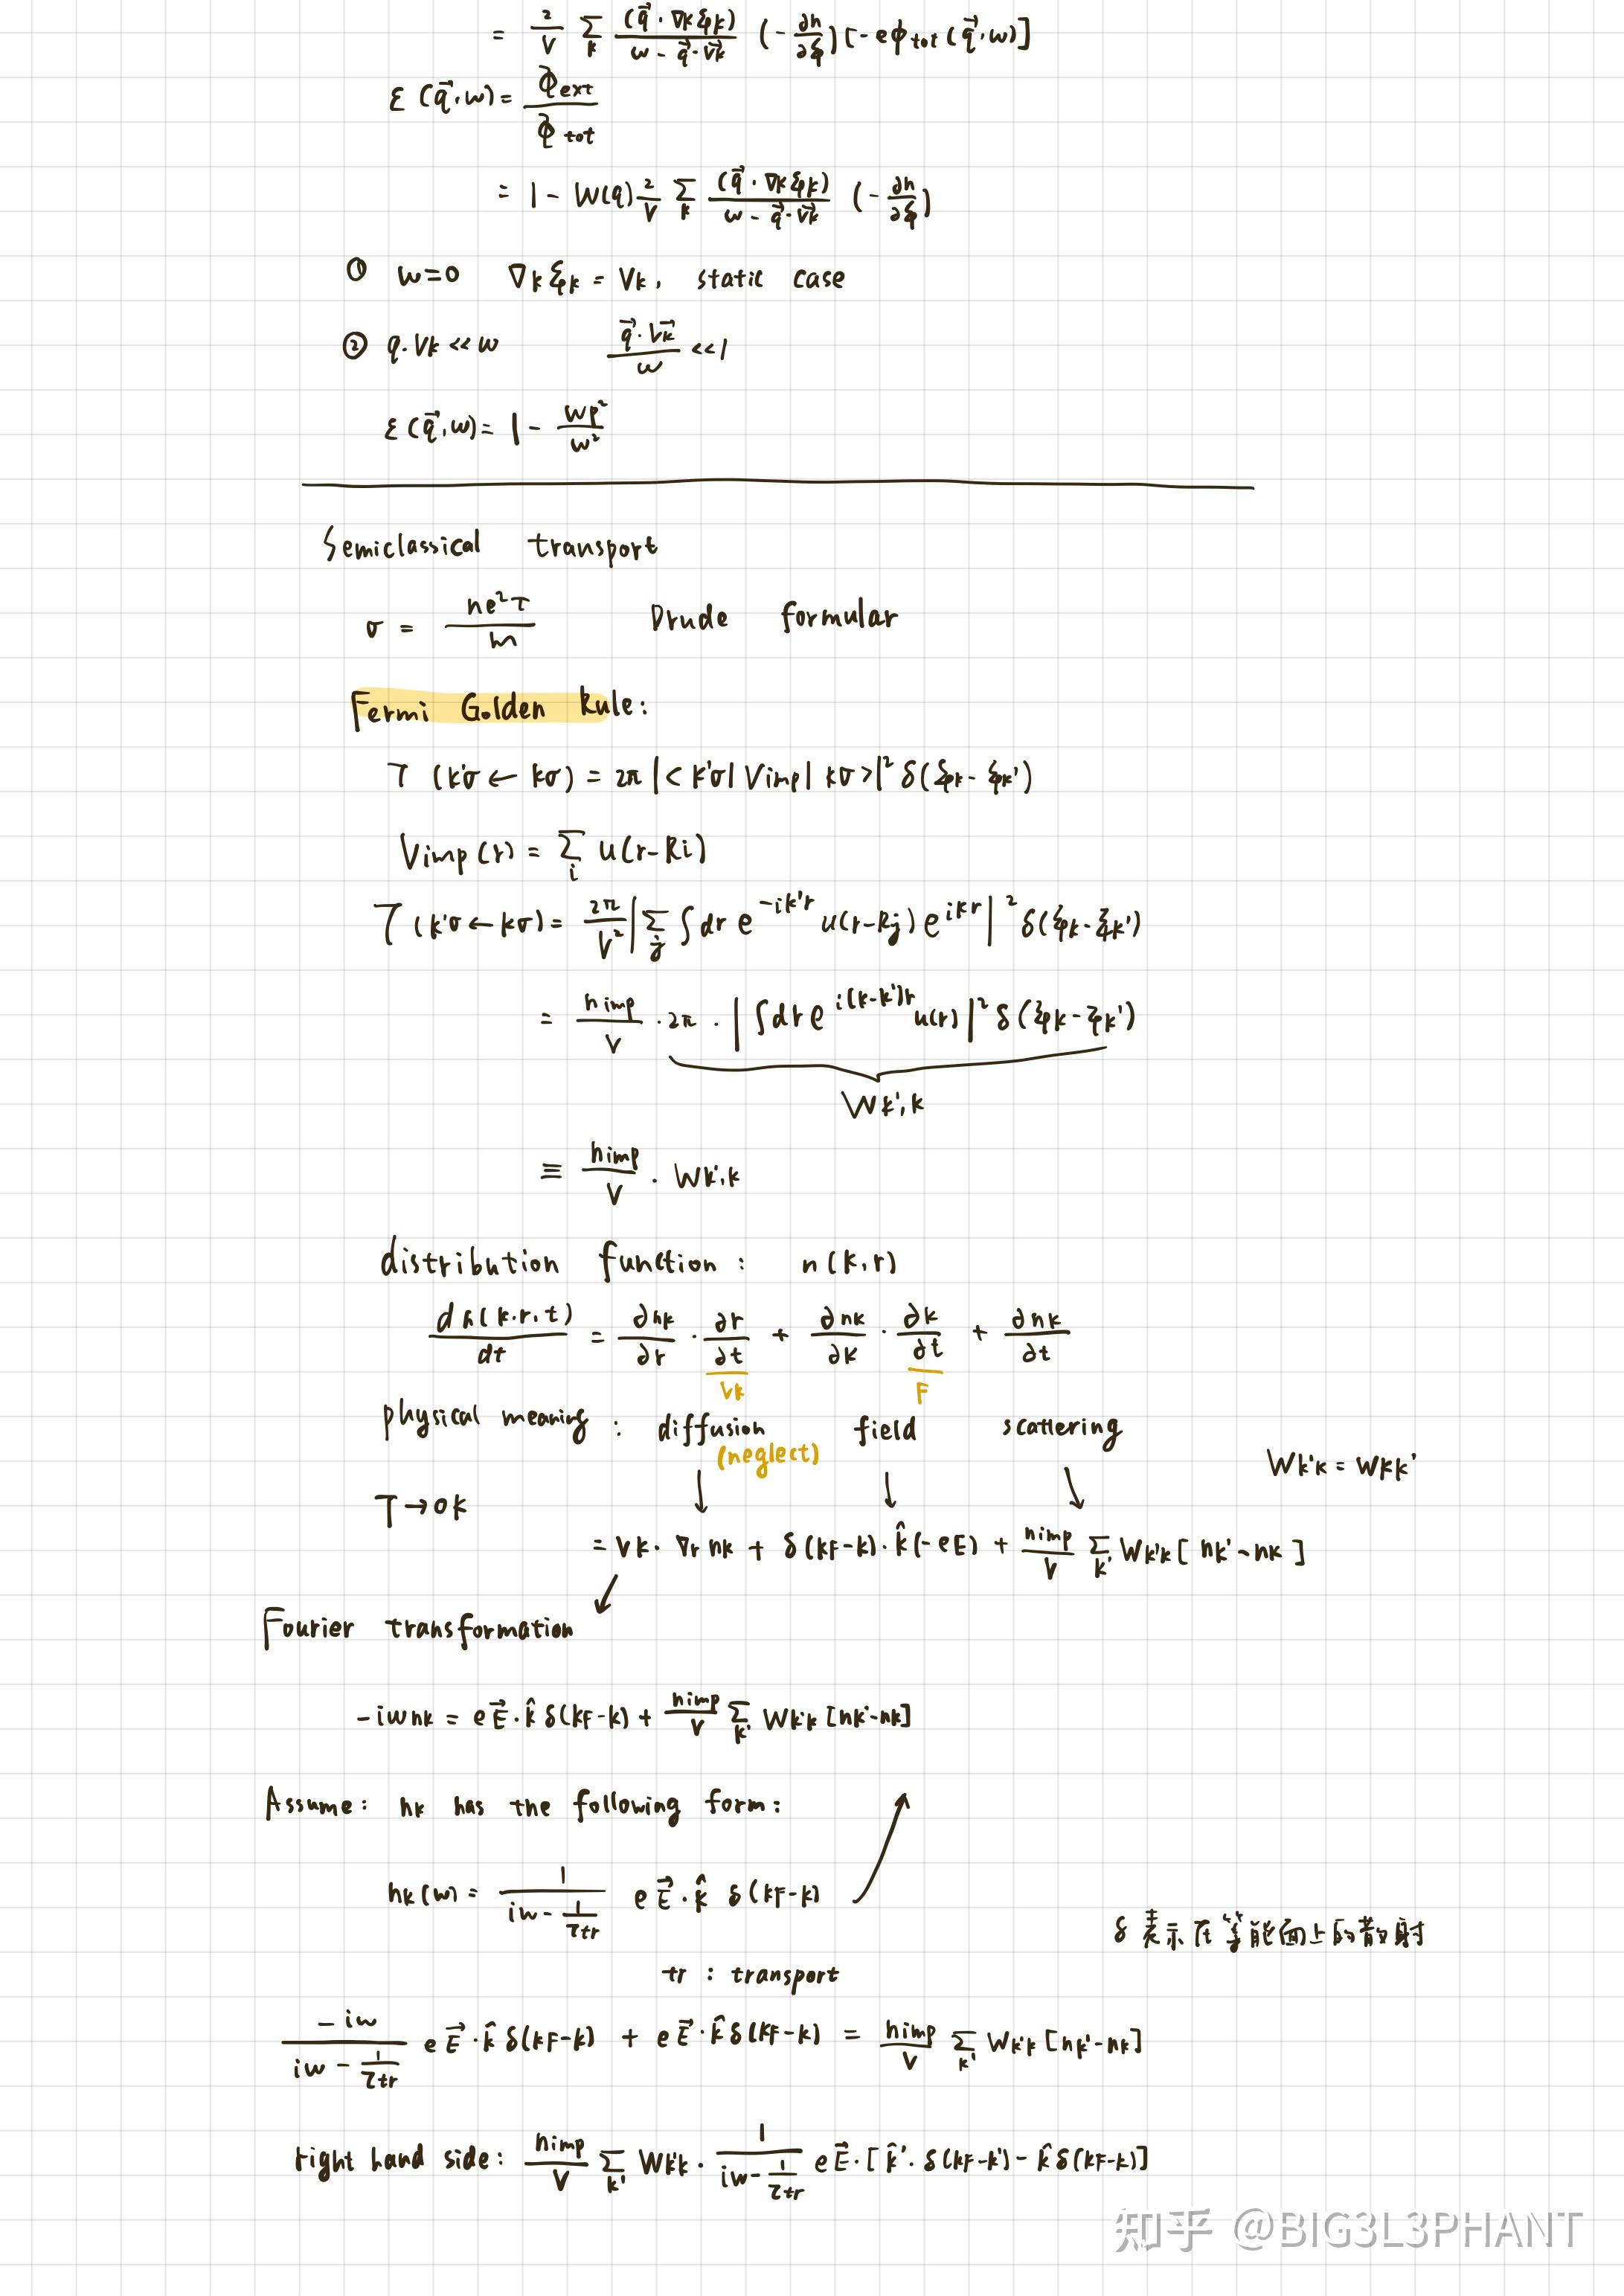 = 2/V Σ_k (q⃗·∇kξk)/(ω - q⃗·v⃗k) (-∂n/∂ξ) [-eϕtot(q⃗,ω)]
ε(q⃗,ω) = ϕext/ϕtot
= 1 - W(q) 2/V Σ_k (q⃗·∇kξk)/(ω - q⃗·v⃗k) (-∂n/∂ξ)
① ω=0 ∇kξk = Vk, static case
② q·Vk << ω (q⃗·V⃗k)/ω <<1
ε(q⃗,ω) = 1 - ωp²/ω²
Semiclassical transport
σ = ne²τ/m Drude formular
Fermi Golden Rule:
T (k'σ ← kσ) = 2π |<k'σ| Vimp| kσ>|² δ(ξk - ξk')
Vimp(r) = Σ_i u(r-Ri)
T (k'σ ← kσ) = 2π/V² |Σ_j ∫dr e^{-ik'r} u(r-Rj) e^{ikr}|² δ(ξk - ξk')
= nimp/V · 2π · |∫dr e^{i(k-k')r} u(r)|² δ(ξk - ξk')
Wk',k
≡ nimp/V · Wk',k
distribution function : n(k,r)
dn(k.r.t)/dt = ∂nk/∂r · ∂r/∂t + ∂nk/∂k · ∂k/∂t + ∂nk/∂t
Vk F
physical meaning : diffusion field scattering
(neglect)
Wk'k = Wkk'
T→0K
= Vk · ∇r nk + δ(kF-k)·k̂(-eE) + nimp/V Σ_k' Wk'k [nk' - nk]
Fourier transformation
-iωnk = eE⃗·k̂ δ(kF-k) + nimp/V Σ_k' Wk'k [nk'-nk]
Assume: nk has the following form:
nk(ω) = 1/(iω - 1/τtr) eE⃗·k̂ δ(kF-k)
δ 表示在等能面上的散射
tr : transport
-iω/(iω - 1/τtr) eE⃗·k̂ δ(kF-k) + eE⃗·k̂ δ(kF-k) = nimp/V Σ_k' Wk'k [nk'-nk]
right hand side: nimp/V Σ_k' Wk'k · 1/(iω - 1/τtr) eE⃗·[k̂'·δ(kF-k') - k̂ δ(kF-k)]
知乎 @BIG3L3PHANT